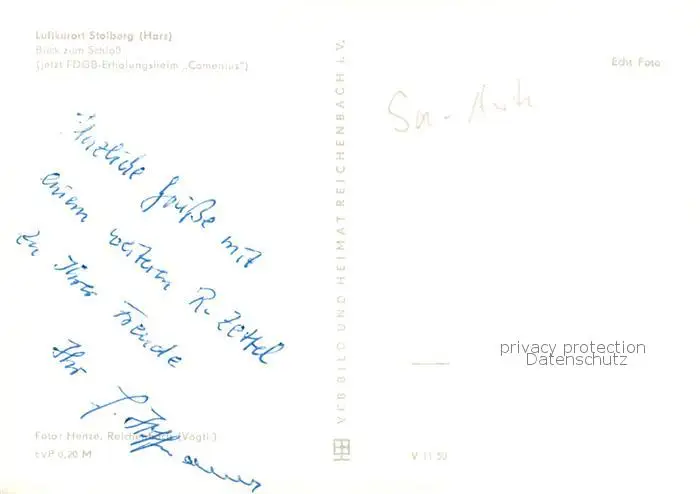 Luftkurort Stolberg (Harz)
Blick zum Schloß
(jetzt FDGB-Erholungsheim „Comenius")
Echt Foto
Herzliche Grüße mit
einem weiteren R. Zettel
zu Ihrer Freude
Ihr
VEB BILD UND HEIMAT REICHENBACH i. V.
privacy protection
Datenschutz
Foto: Henze, Reichenbach (Vogtl.)
EVP 0,20 M
V 11 50